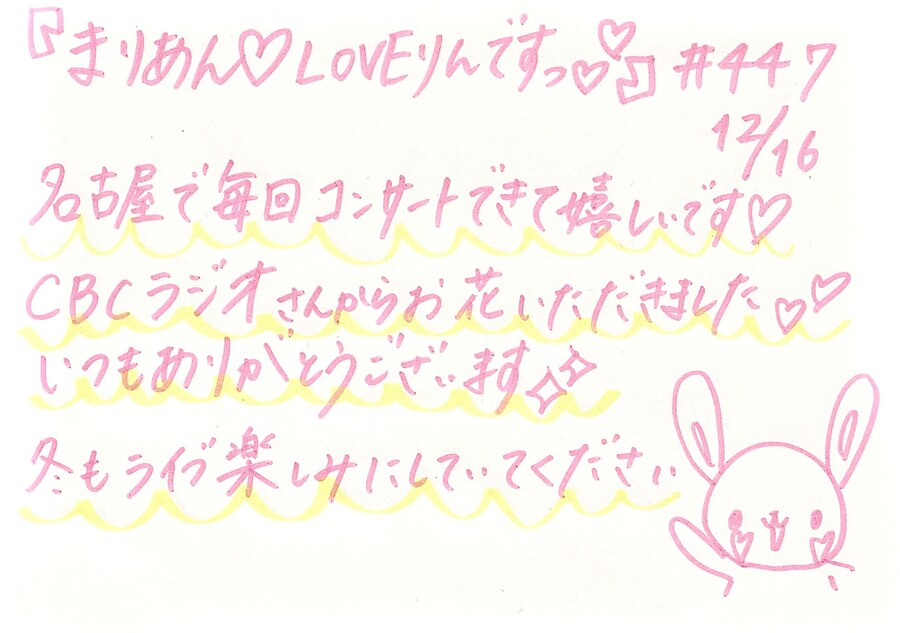 『まりあん♡LOVEりんですっ♡♡』#447
12/16
名古屋で毎回コンサートできて嬉しいです♡
CBCラジオさんからお花いただきました♡♡
いつもありがとうございます✧✧
冬もライブ楽しみにしていてください